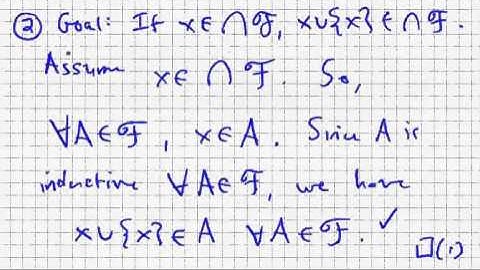 ② Goal: If x∈⋂ℱ, x∪{x}∈⋂ℱ.
Assume x∈⋂ℱ. So,
∀A∈ℱ, x∈A. Since A is
inductive ∀A∈ℱ, we have
x∪{x}∈A ∀A∈ℱ. ✓
□(1)